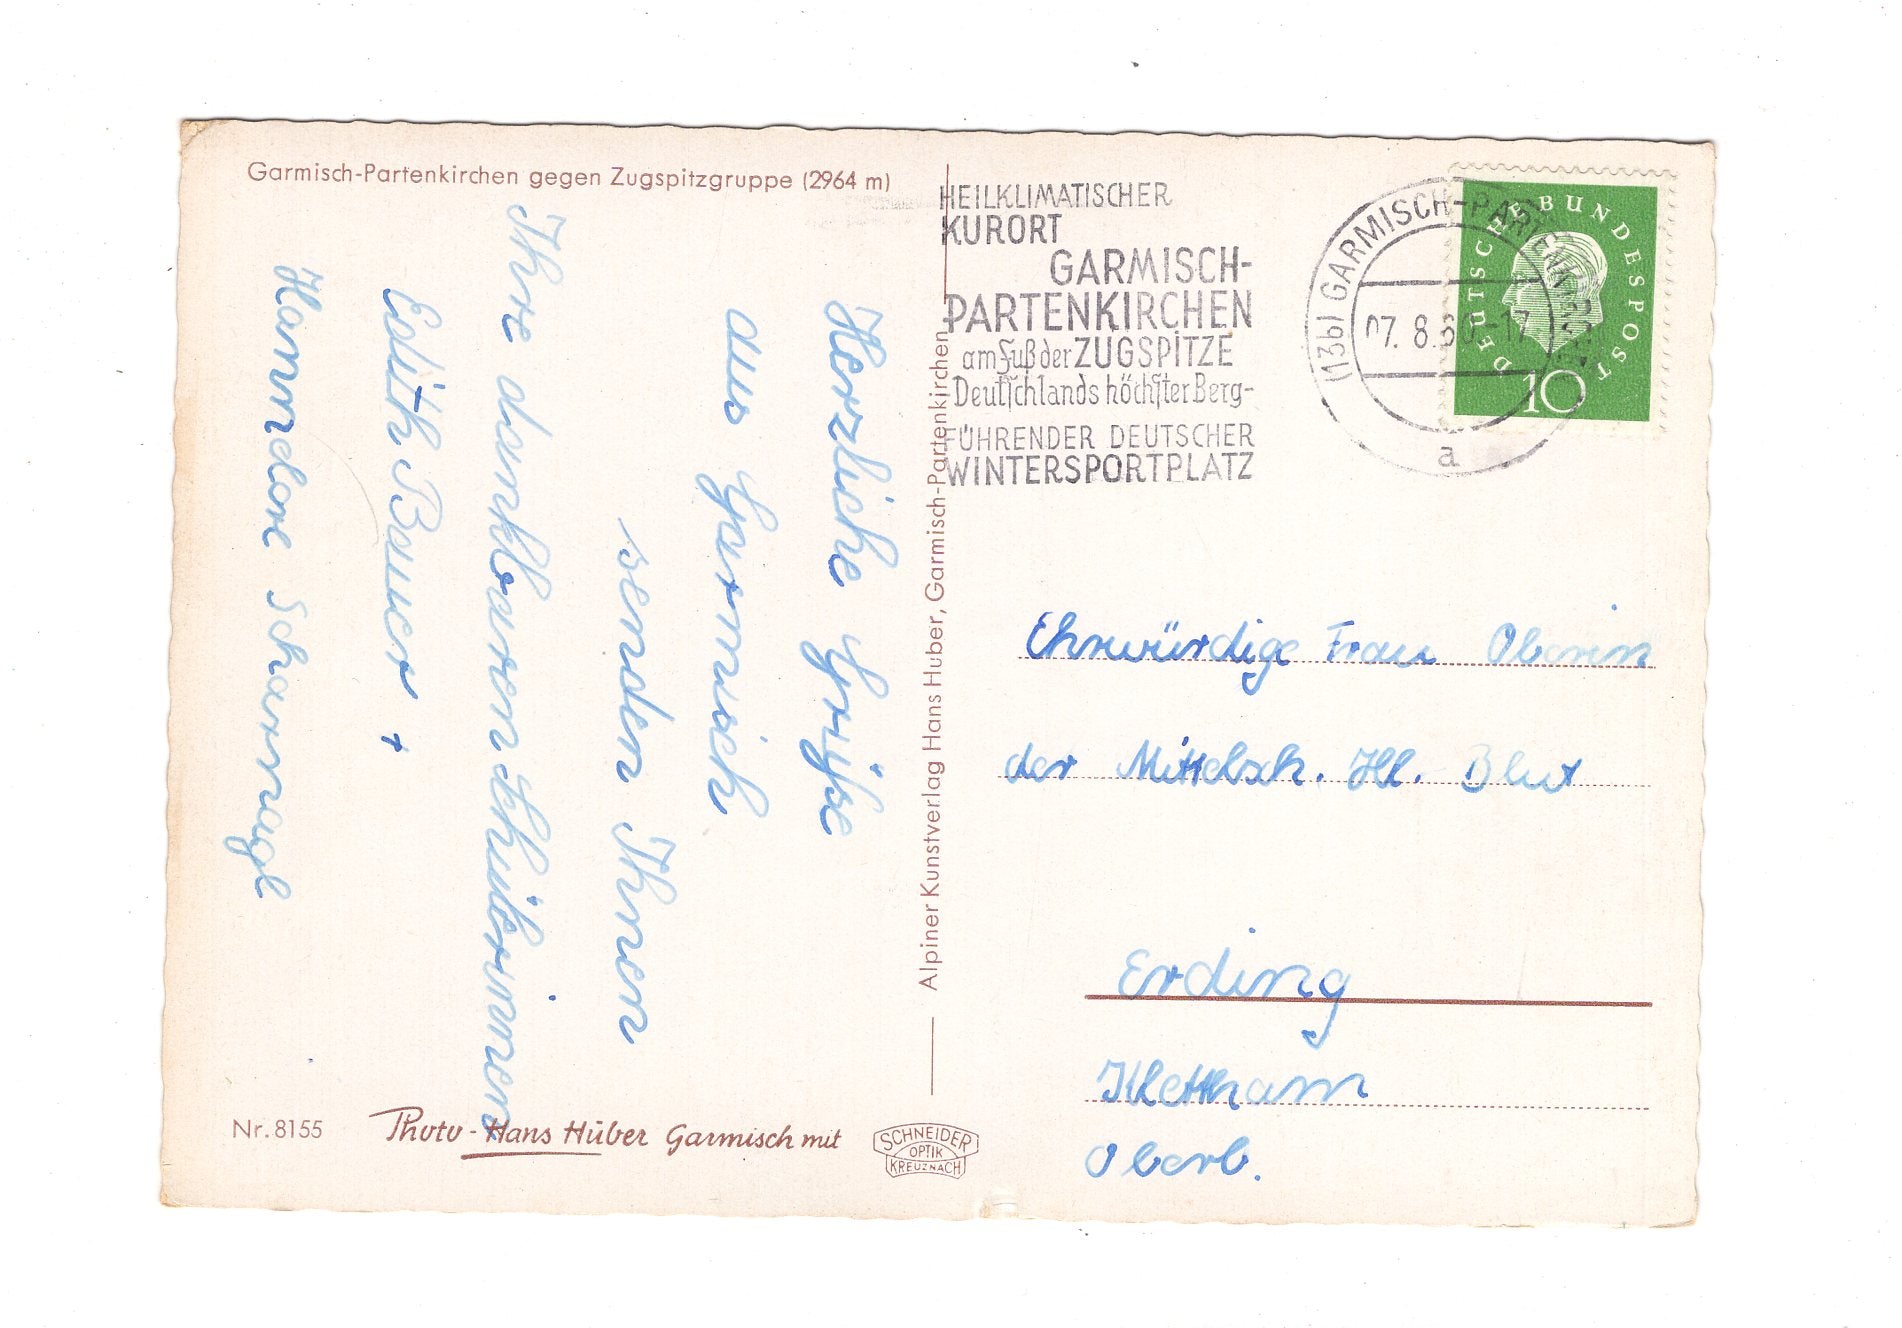 Garmisch-Partenkirchen gegen Zugspitzgruppe (2964 m)
Herzliche Grüße
aus Garmisch
senden Ihnen
Ihre dankbaren Schülerinnen
Edith Bauer +
Hannelore Scharnagl
Nr. 8155
Photo-Hans Huber Garmisch mit
SCHNEIDER
OPTIK
KREUZNACH
Alpiner Kunstverlag Hans Huber, Garmisch-Partenkirchen
HEILKLIMATISCHER
KURORT
GARMISCH-
PARTENKIRCHEN
am Fuß der ZUGSPITZE
Deutschlands höchster Berg-
FÜHRENDER DEUTSCHER
WINTERSPORTPLATZ
(13b) GARMISCH-PARTENKIRCHEN
07.8.60-17
a
DEUTSCHE BUNDESPOST
10
Ehrwürdige Frau Oberin
der Mittelsch. Hl. Blut
Erding
Klettham
Oberb.